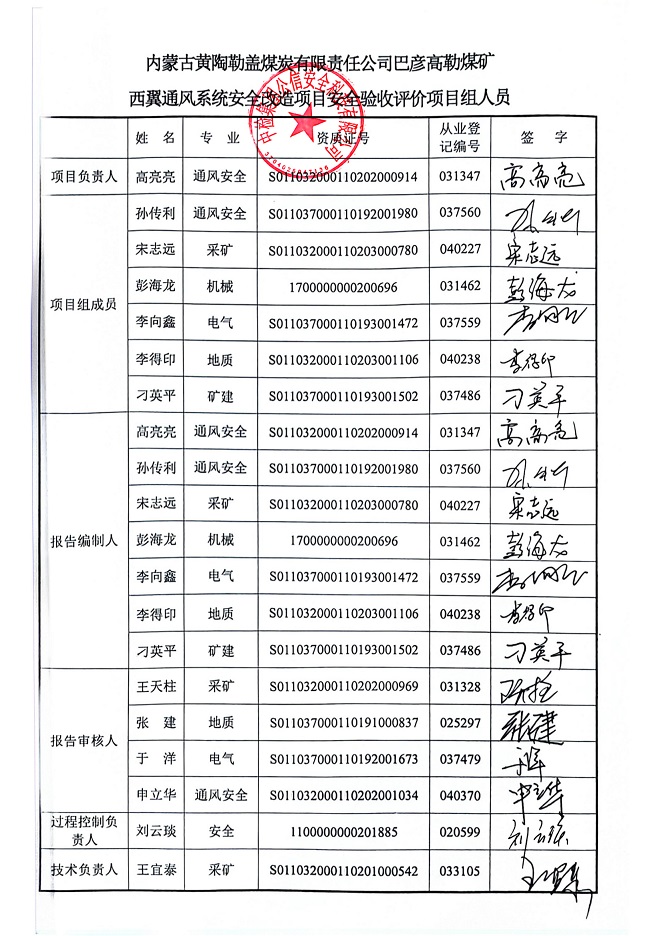 内蒙古黄陶勒盖煤炭有限责任公司巴彦高勒煤矿
西翼通风系统安全改造项目安全验收评价项目组人员
姓 名 专 业 资质证号 从业登记编号 签 字
项目负责人 高亮亮 通风安全 S011032000110202000914 031347 高亮亮
项目组成员 孙传利 通风安全 S011037000110192001980 037560
宋志远 采矿 S011032000110203000780 040227 宋志远
彭海龙 机械 1700000000200696 031462 彭海龙
李向鑫 电气 S011037000110193001472 037559
李得印 地质 S011032000110203001106 040238 李得印
刁英平 矿建 S011037000110193001502 037486 刁英平
报告编制人 高亮亮 通风安全 S011032000110202000914 031347 高亮亮
孙传利 通风安全 S011037000110192001980 037560
宋志远 采矿 S011032000110203000780 040227 宋志远
彭海龙 机械 1700000000200696 031462 彭海龙
李向鑫 电气 S011037000110193001472 037559
李得印 地质 S011032000110203001106 040238 李得印
刁英平 矿建 S011037000110193001502 037486 刁英平
报告审核人 王天柱 采矿 S011032000110202000969 031328
张 建 地质 S011037000110191000837 025297 张建
于 洋 电气 S011037000110192001673 037479 于洋
申立华 通风安全 S011032000110202001034 040370 申立华
过程控制负责人 刘云琰 安全 1100000000201885 020599 刘云琰
技术负责人 王宜泰 采矿 S011032000110201000542 033105